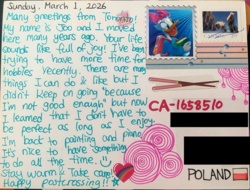 Sunday, March 1, 2026
Many greetings from Toronto!
My name is Joo and I moved
here many years ago. Your life
sounds like full of joy! I've been
trying to have more time for
hobbies recently. There are many
things I can do & like but I
didn't keep on going "because
I'm not good enough" but now
I learned that I don't have to
be perfect as long as I enjoy.
I'm back to painting and piano.
It's nice to have something
to do all the time.
Stay warm! Take care!
Happy postcrossing!!
CA-1658510
POLAND